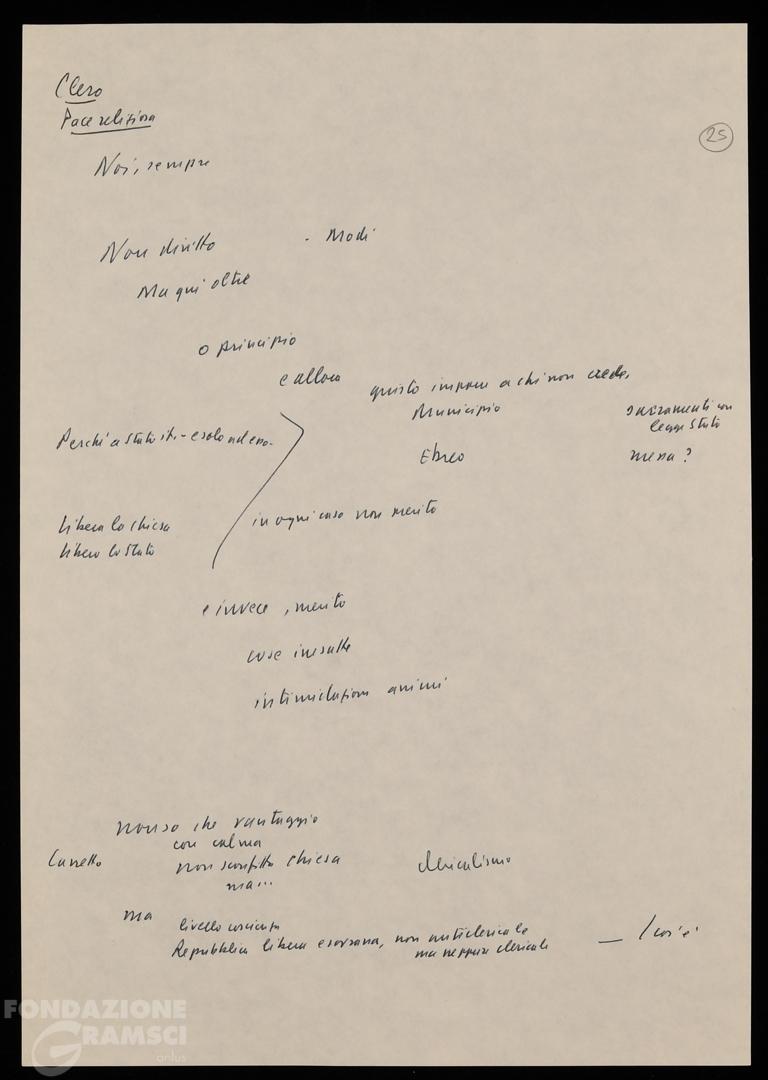 Clero
Pace religiosa
25
Noi, sempre
Non diritto - Modi
Ma qui oltre
o principio
e allora questo imporre a chi non crede,
Municipio sacramenti con
legge Stato
Perché a Stato e solo ad esso
Ebreo messa?
Libera la chiesa in ogni caso non merito
Libero lo Stato
e invece, merito
cose inesatte
intimidazioni animi
non so che vantaggio
con calma
non sconfitta chiesa clericalismo
ma...
ma
livello coscienza
Repubblica libera e sovrana, non anticlericale — Cos'è
ma neppure clericale
FONDAZIONE
GRAMSCI
onlus